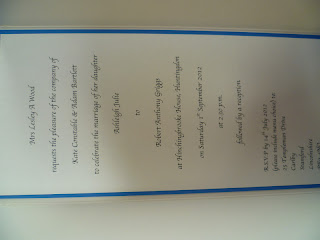 Mrs Lesley A Wood
requests the pleasure of the company of
Kate Constable & Adam Bartlett
to celebrate the marriage of her daughter
Ashleigh Julie
to
Robert Anthony Griggs
at Hinchingbrooke House, Huntingdon
on Saturday 1st September 2012
at 2.30 p.m.
followed by a reception
R.S.V.P by 14th July 2012
(please include menu choice) to
Careby
Stamford
Lincolnshire